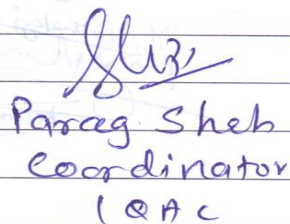 Parag Shah
Coordinator
IQAC